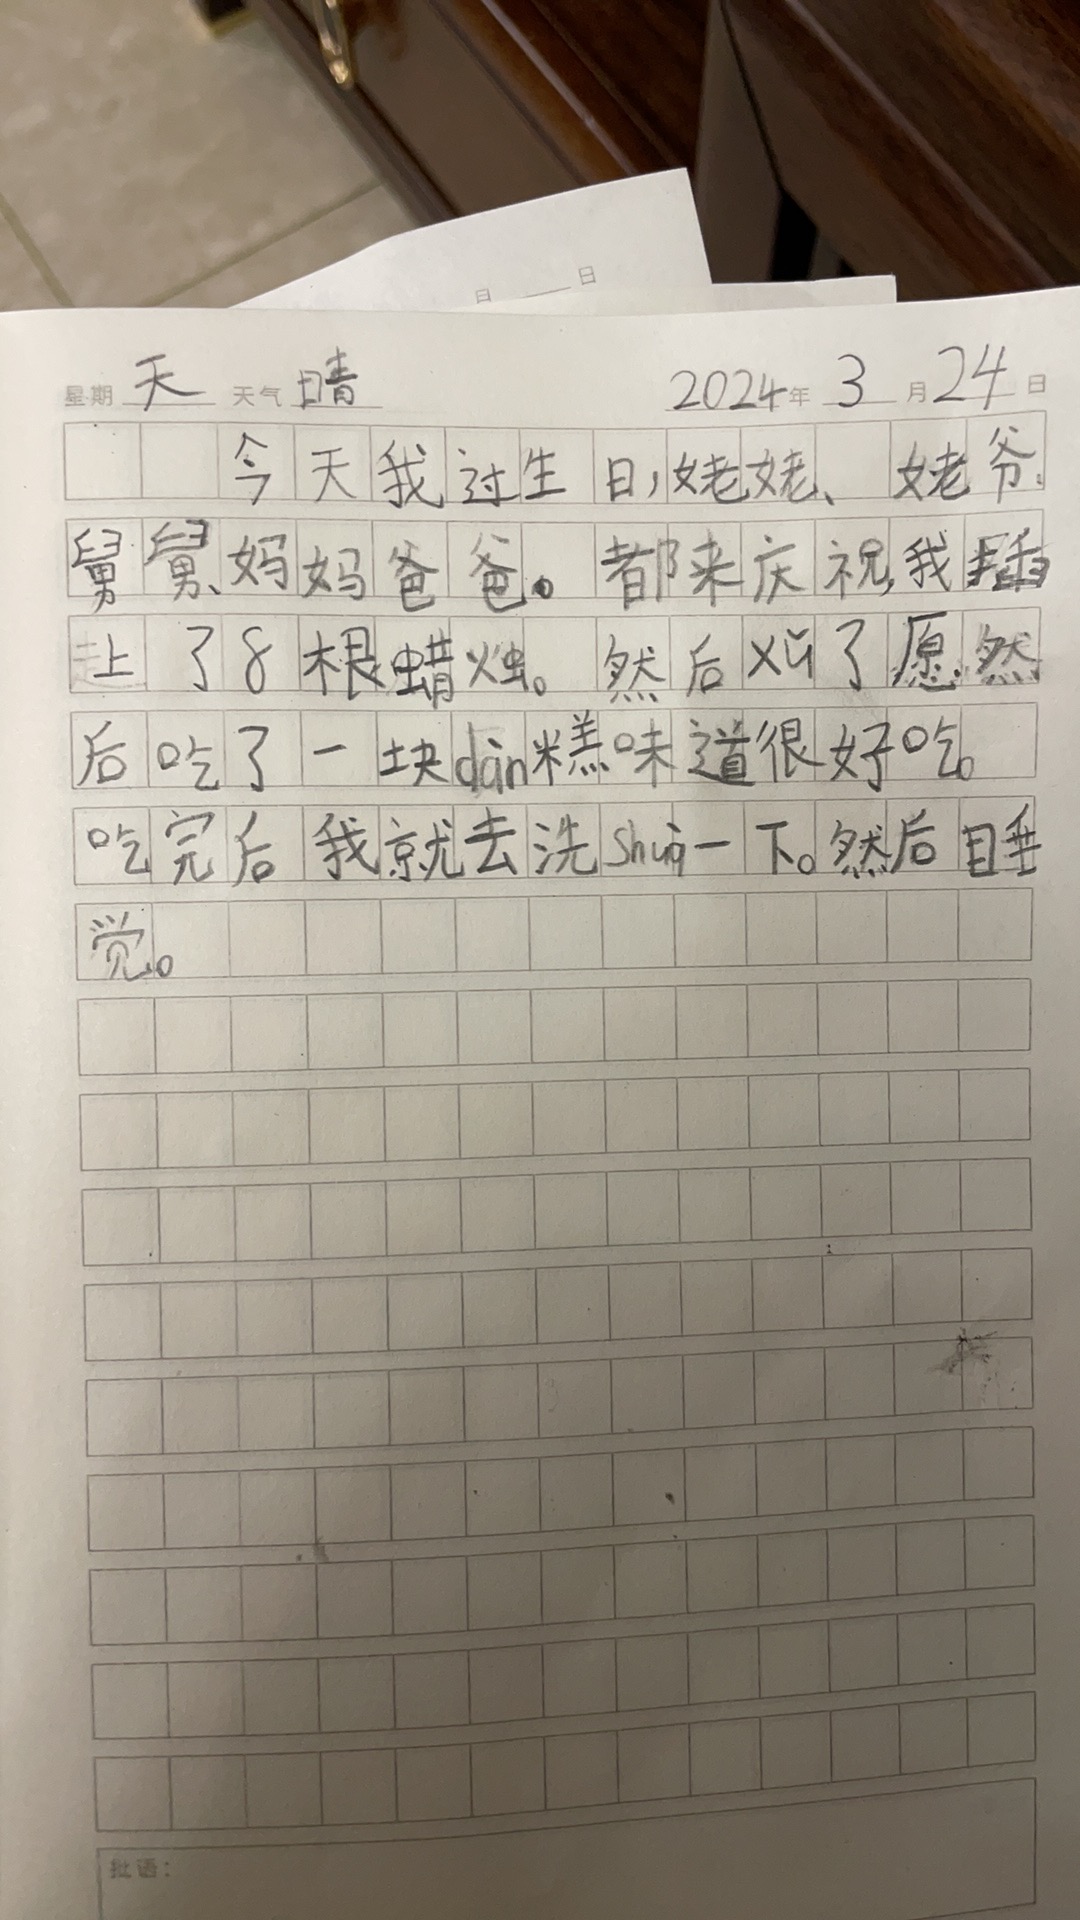 月 日
星期 天 天气 晴 2024年 3 月 24 日
今天我过生日,姥姥、姥爷、
舅舅、妈妈爸爸。都来庆祝,我插
上了8根蜡烛。然后xǔ了愿.然
后吃了一块dàn糕味道很好吃。
吃完后我就去洗shuā一下。然后睡
觉。
批语：